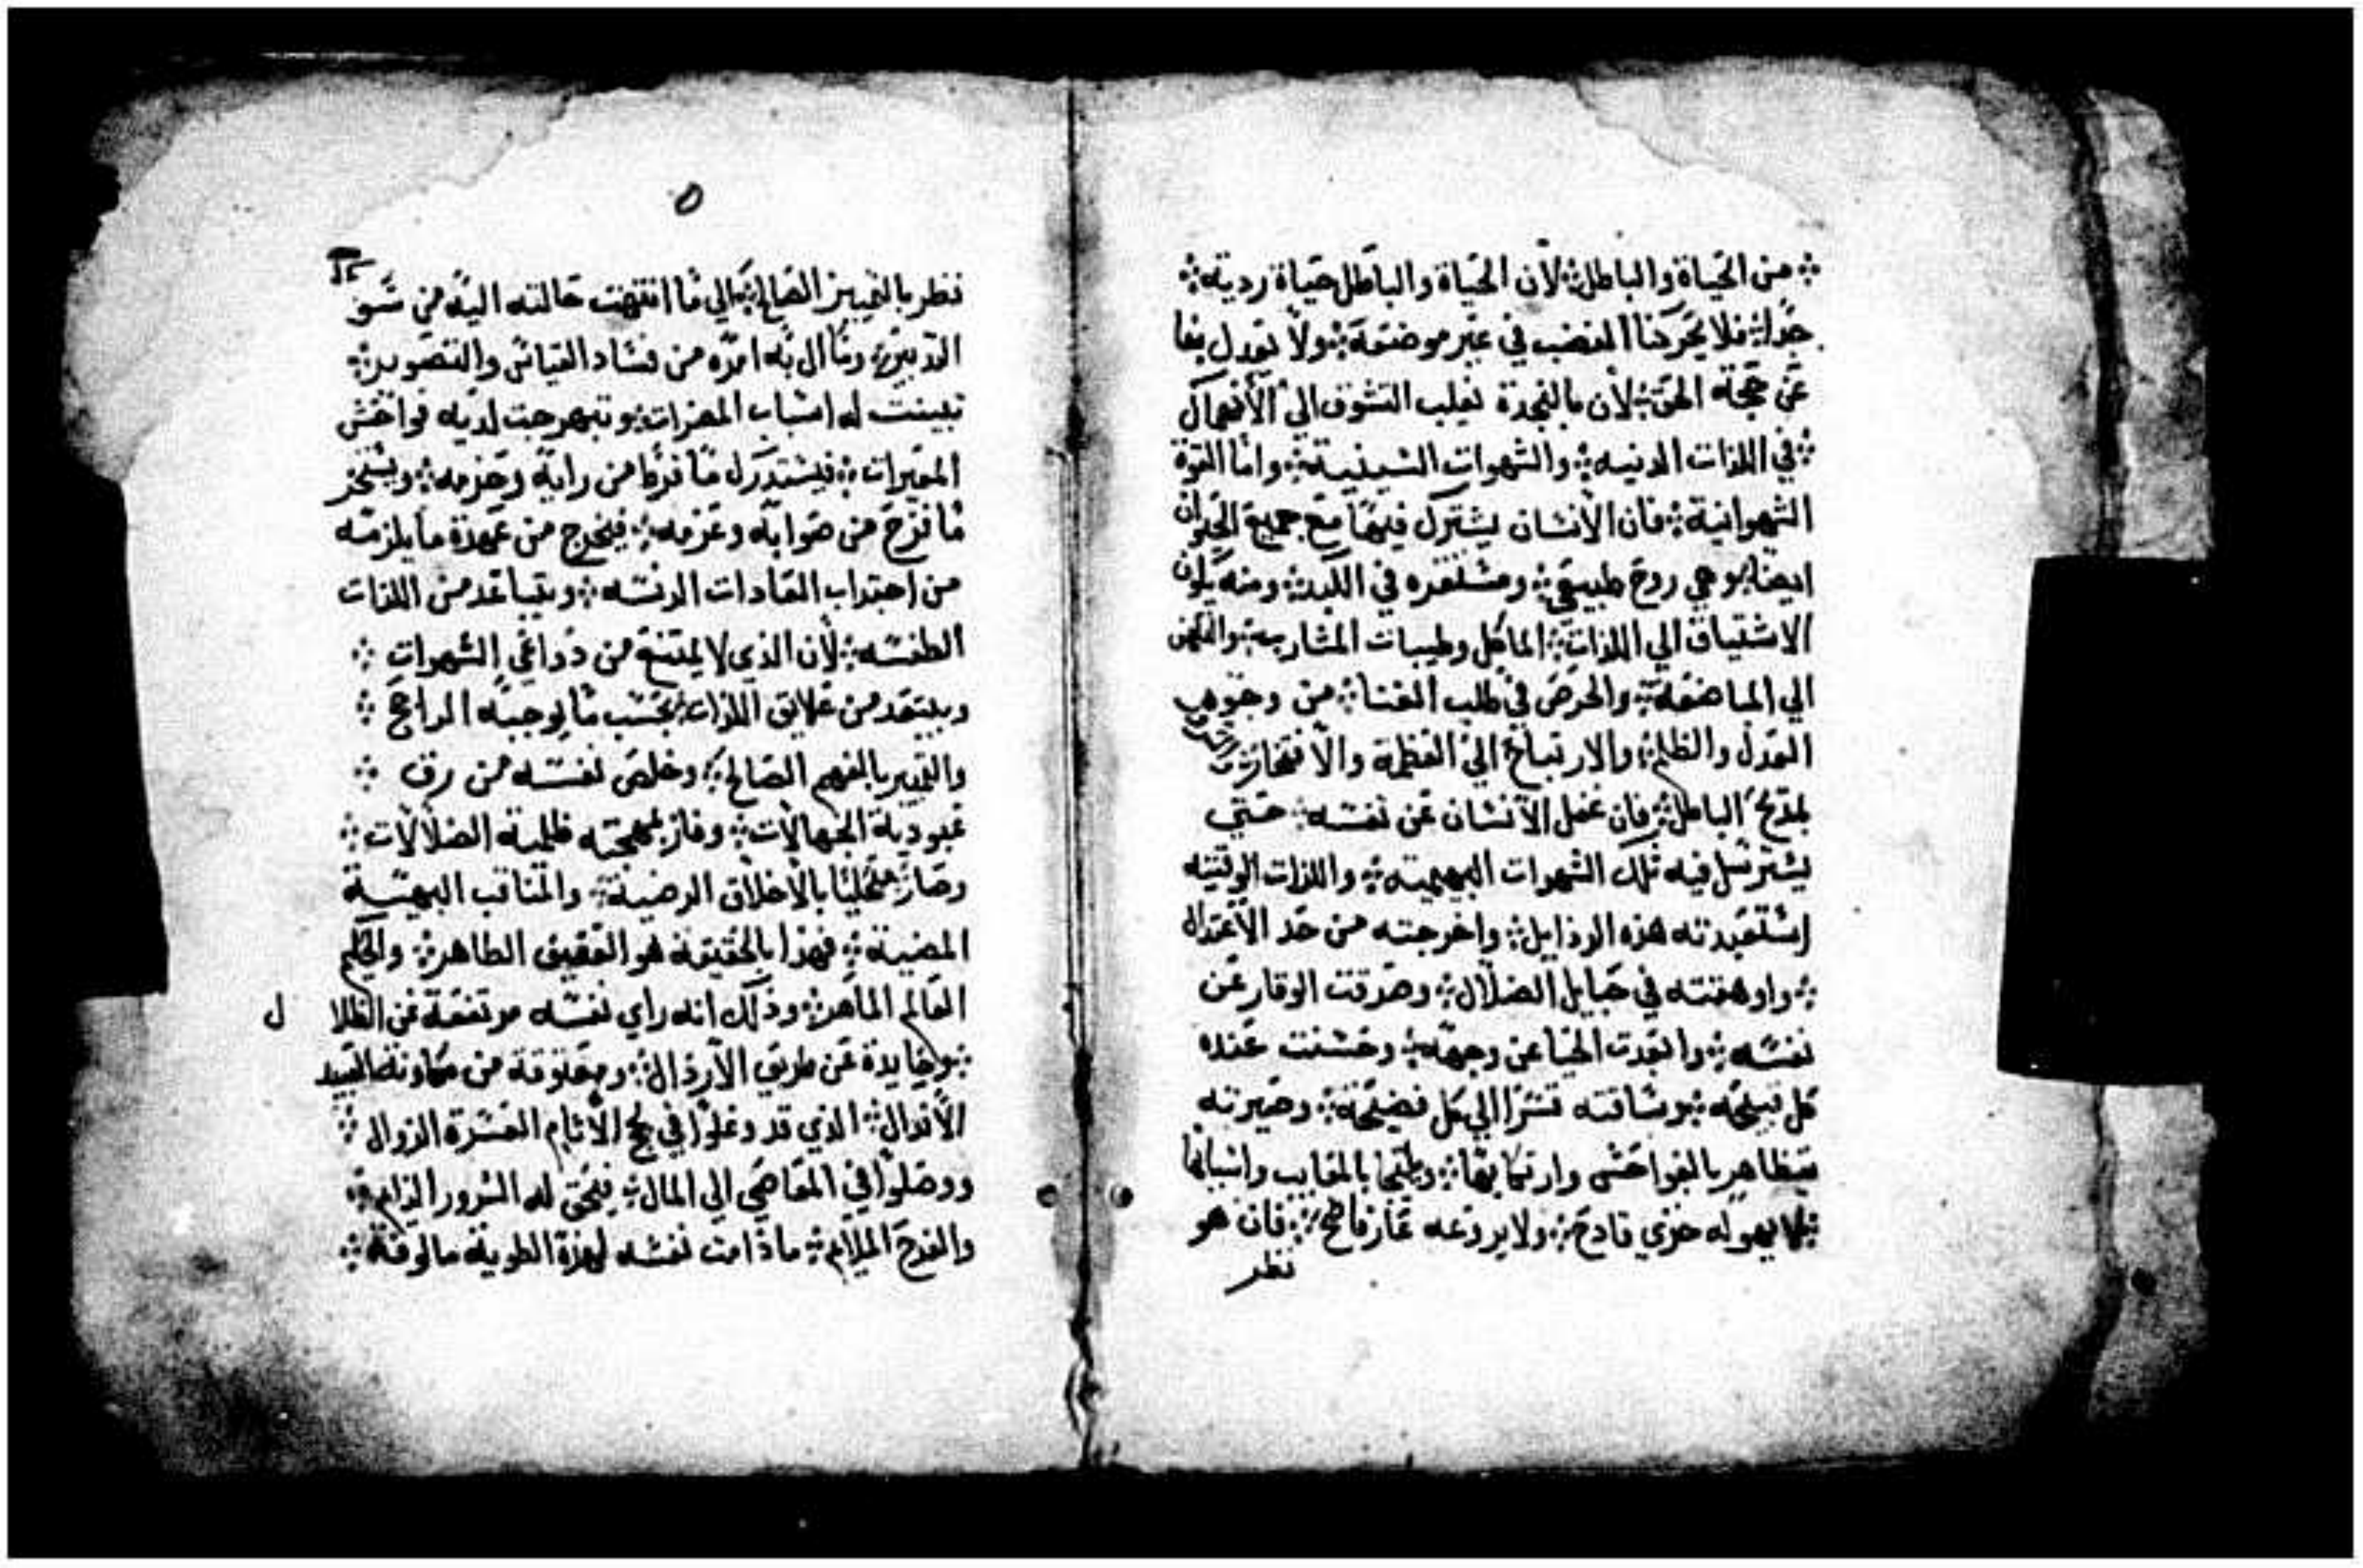 من الحياة والباطل لان الحياة والباطل حياة ردية
جدا فلا يحركنا الغضب في غير موضعه ولا نعدل بها
عن حجة الحق لان بالنجدة نغلب التشوف الي الانهماك
في اللذات الدنيه والشهوات الشينية واما القوة
الشهوانية فان الانسان يشترك فيها مع جميع الحيوان
ايضا وهي روح طبيعي ومستقره في الكبد ومنه يكون
الاشتياق الي اللذات الماكل وطيبات المشارب
الي المباضعة والحرص في طلب الغنا من وجوهي
العدل والظلم والارتياح الي العظمة والافتخار
بمديح الباطل فان غفل الانسان عن نفسه حتي
يسترسل فيه تلك الشهوات البهيميته واللذات الوقتيه
استعبدته هذه الرذايل واخرجته من حد الاعتدال
واوهقته في حبايل الضلال وصرفت الوقار عن
نفسه وابعدت الحيا عن وجهه وحسنت عنده
كل قبيحه وساقته قسرا الي كل فضيحة وصيرته
يتظاهر بالفواحش وارتكابها بالمعايب واسبابها
فلا يهوله خزي فادح ولا يردعه عار فاضح فان هو
نظر
٥
فنظر بالتمييز الصالح الي ما انتهت حالته اليه من سو
التدبير وما ال به امره من فساد القياس والتصوير
تبينت له اسباب المضرات وتبهرجت لديه فواحش
المعيرات فيستدرك ما فرط من رايه وحزمه
ما نزح من صوابه وعزمه فيخرج من عهدة ما يلزمه
من اجتداب العادات الدنسه ويتباعد من اللذات
الطفسه لان الذي لا يمتنع من دواعي الشهوات
ويبتعد من علايق اللذات بحسب ما يوجبه الراجح
والتمييز بالفهم الصالح وخلص نفسه من رق
عبودية الجهالات وفاز بمهجته ظلمة الضلالات
وصار متحليا بالاخلاق الرضية والمناقب البهيسة
المضية فهذا بالحقيقة هو العفيف الطاهر والحكيم
العالم الماهر وذلك انه راي نفسه مرتفعة عن الظلال
وحايدة عن طريق الارذال ومعتوقة من معاونة العبيد
الاندال الذي قد وغلوا في لجج الاثام العسرة الزوال
ووصلوا في المعاصي الي المال فيحق له السرور الدايم
والفرح الملايم ما دامت نفسه لهذة الطوية مالوفة